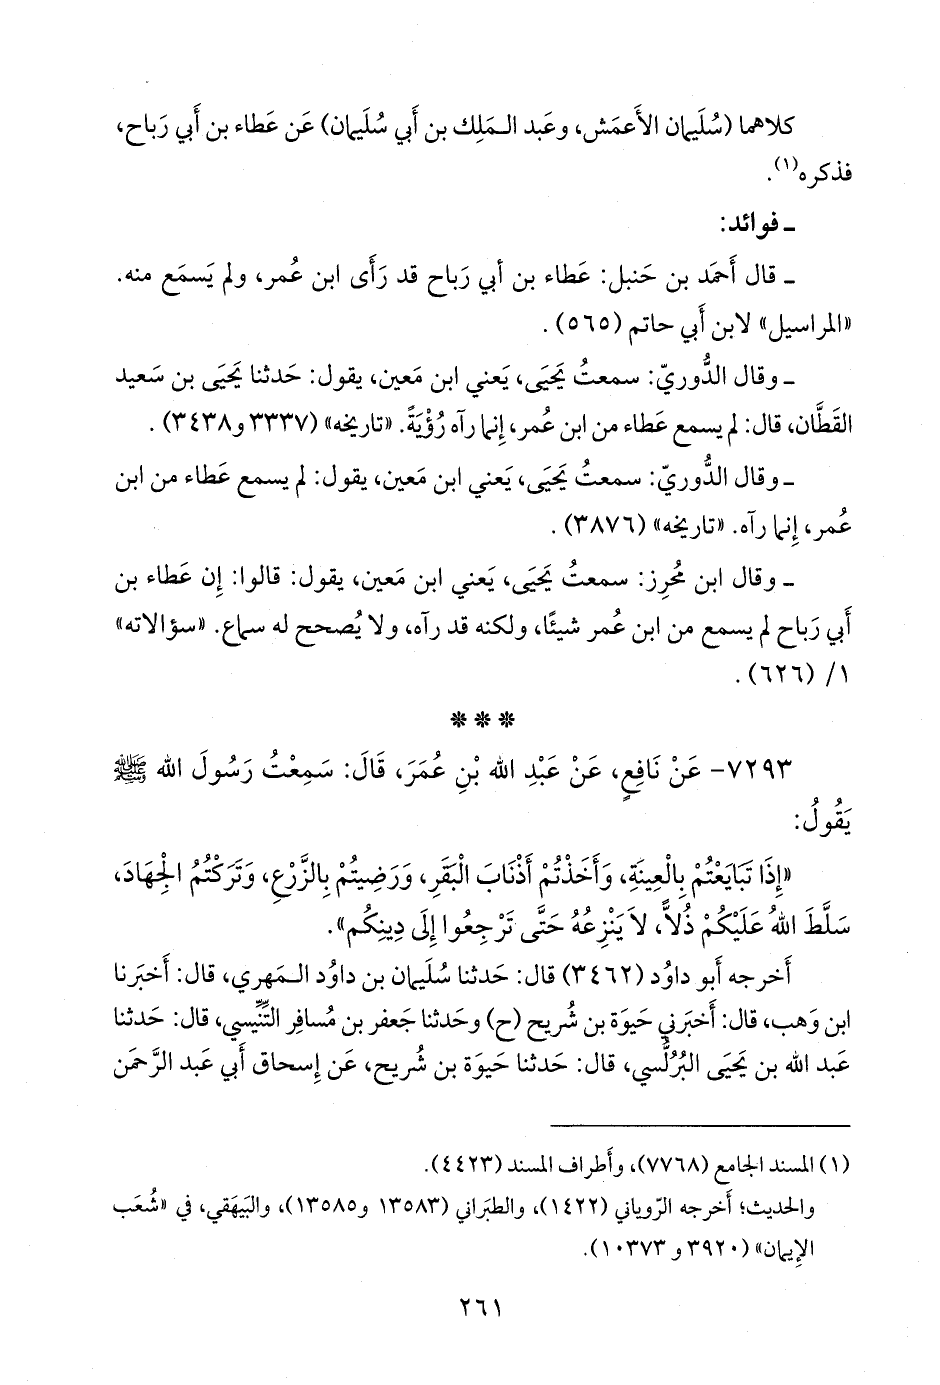 كلاهما (سُلَيمان الأَعمَش، وعَبد الـمَلِك بن أَبي سُلَيمان) عَن عَطاء بن أَبي رَباح،
فذكره(١).
ـ فوائد:
ـ قال أَحمَد بن حَنبل: عَطاء بن أَبي رَباح قد رَأَى ابن عُمر، ولم يَسمَع منه.
«المراسيل» لابن أَبي حاتم (٥٦٥).
ـ وقال الدُّوريّ: سمعتُ يَحيَى، يَعني ابن مَعين، يقول: حَدثنا يَحيَى بن سَعيد
القَطَّان، قال: لم يسمع عَطاء من ابن عُمر، إِنما رآه رُؤْيَةً. «تاريخه» (٣٣٣٧ و٣٤٣٨).
ـ وقال الدُّوريّ: سمعتُ يَحيَى، يَعني ابن مَعين، يقول: لم يسمع عَطاء من ابن
عُمر، إِنما رآه. «تاريخه» (٣٨٧٦).
ـ وقال ابن مُحرِز: سمعتُ يَحيَى، يَعني ابن مَعين، يقول: قالوا: إِن عَطاء بن
أَبي رَباح لم يسمع من ابن عُمر شيئًا، ولكنه قد رآه، ولا يُصحح له سماع. «سؤالاته»
١/ (٦٢٦).
* * *
٧٢٩٣- عَنْ نَافِعٍ، عَنْ عَبْدِ الله بْنِ عُمَرَ، قَالَ: سَمِعْتُ رَسُولَ الله ﷺ
يَقُولُ:
«إِذَا تَبَايَعْتُمْ بِالْعِينَةِ، وَأَخَذْتُمْ أَذْنَابَ الْبَقَرِ، وَرَضِيتُمْ بِالزَّرْعِ، وَتَرَكْتُمُ الْجِهَادَ،
سَلَّطَ اللهُ عَلَيْكُمْ ذُلاًّ، لاَ يَنْزِعُهُ حَتَّى تَرْجِعُوا إِلَى دِينِكُم».
أَخرجه أَبو داوُد (٣٤٦٢) قال: حَدثنا سُلَيمان بن داوُد الـمَهري، قال: أَخبَرنا
ابن وَهب، قال: أَخبَرني حَيوَة بن شُريح (ح) وحَدثنا جَعفر بن مُسافِر التِّنِّيسي، قال: حَدثنا
عَبد الله بن يَحيَى البُرُلُّسي، قال: حَدثنا حَيوَة بن شُريح، عَن إِسحاق أَبي عَبد الرَّحمَن
(١) المسند الجامع (٧٧٦٨)، وأَطراف المسند (٤٤٢٣).
والحديث؛ أَخرجه الرّوياني (١٤٢٢)، والطبَراني (١٣٥٨٣ و١٣٥٨٥)، والبَيهَقي، في «شُعَب
الإِيمان» (٣٩٢٠ و ١٠٣٧٣).
٢٦١